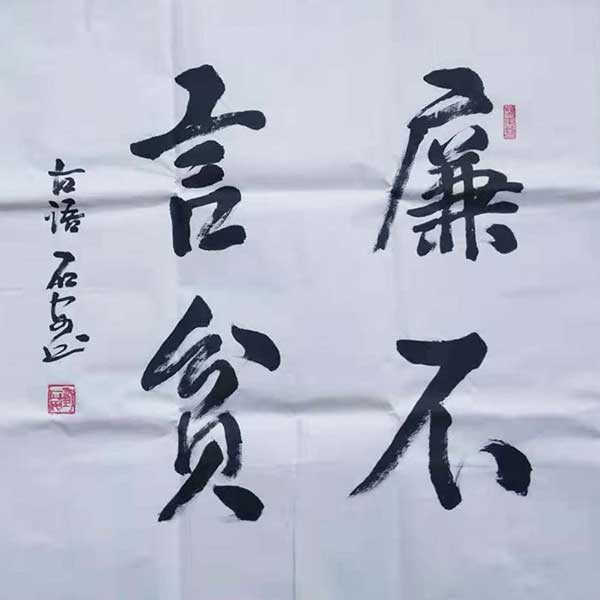 廉不
言貧
古语 石